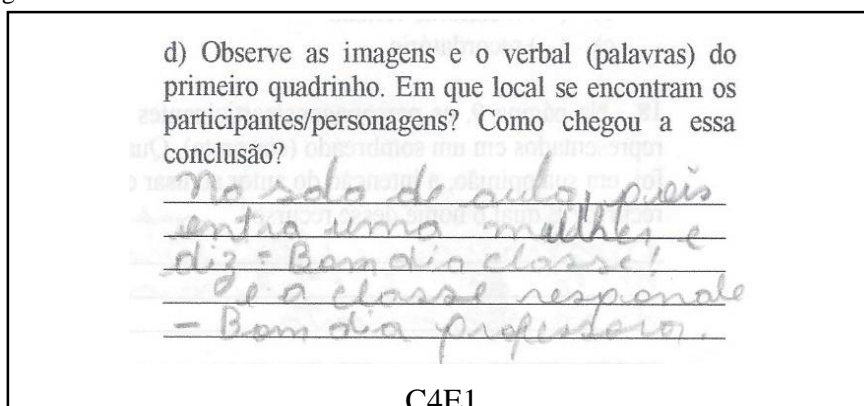 d) Observe as imagens e o verbal (palavras) do
primeiro quadrinho. Em que local se encontram os
participantes/personagens? Como chegou a essa
conclusão?
Na sala de aula, pois
entra uma mulher e
diz - Bom dia classe!
e a classe responde
- Bom dia professora.
C4E1